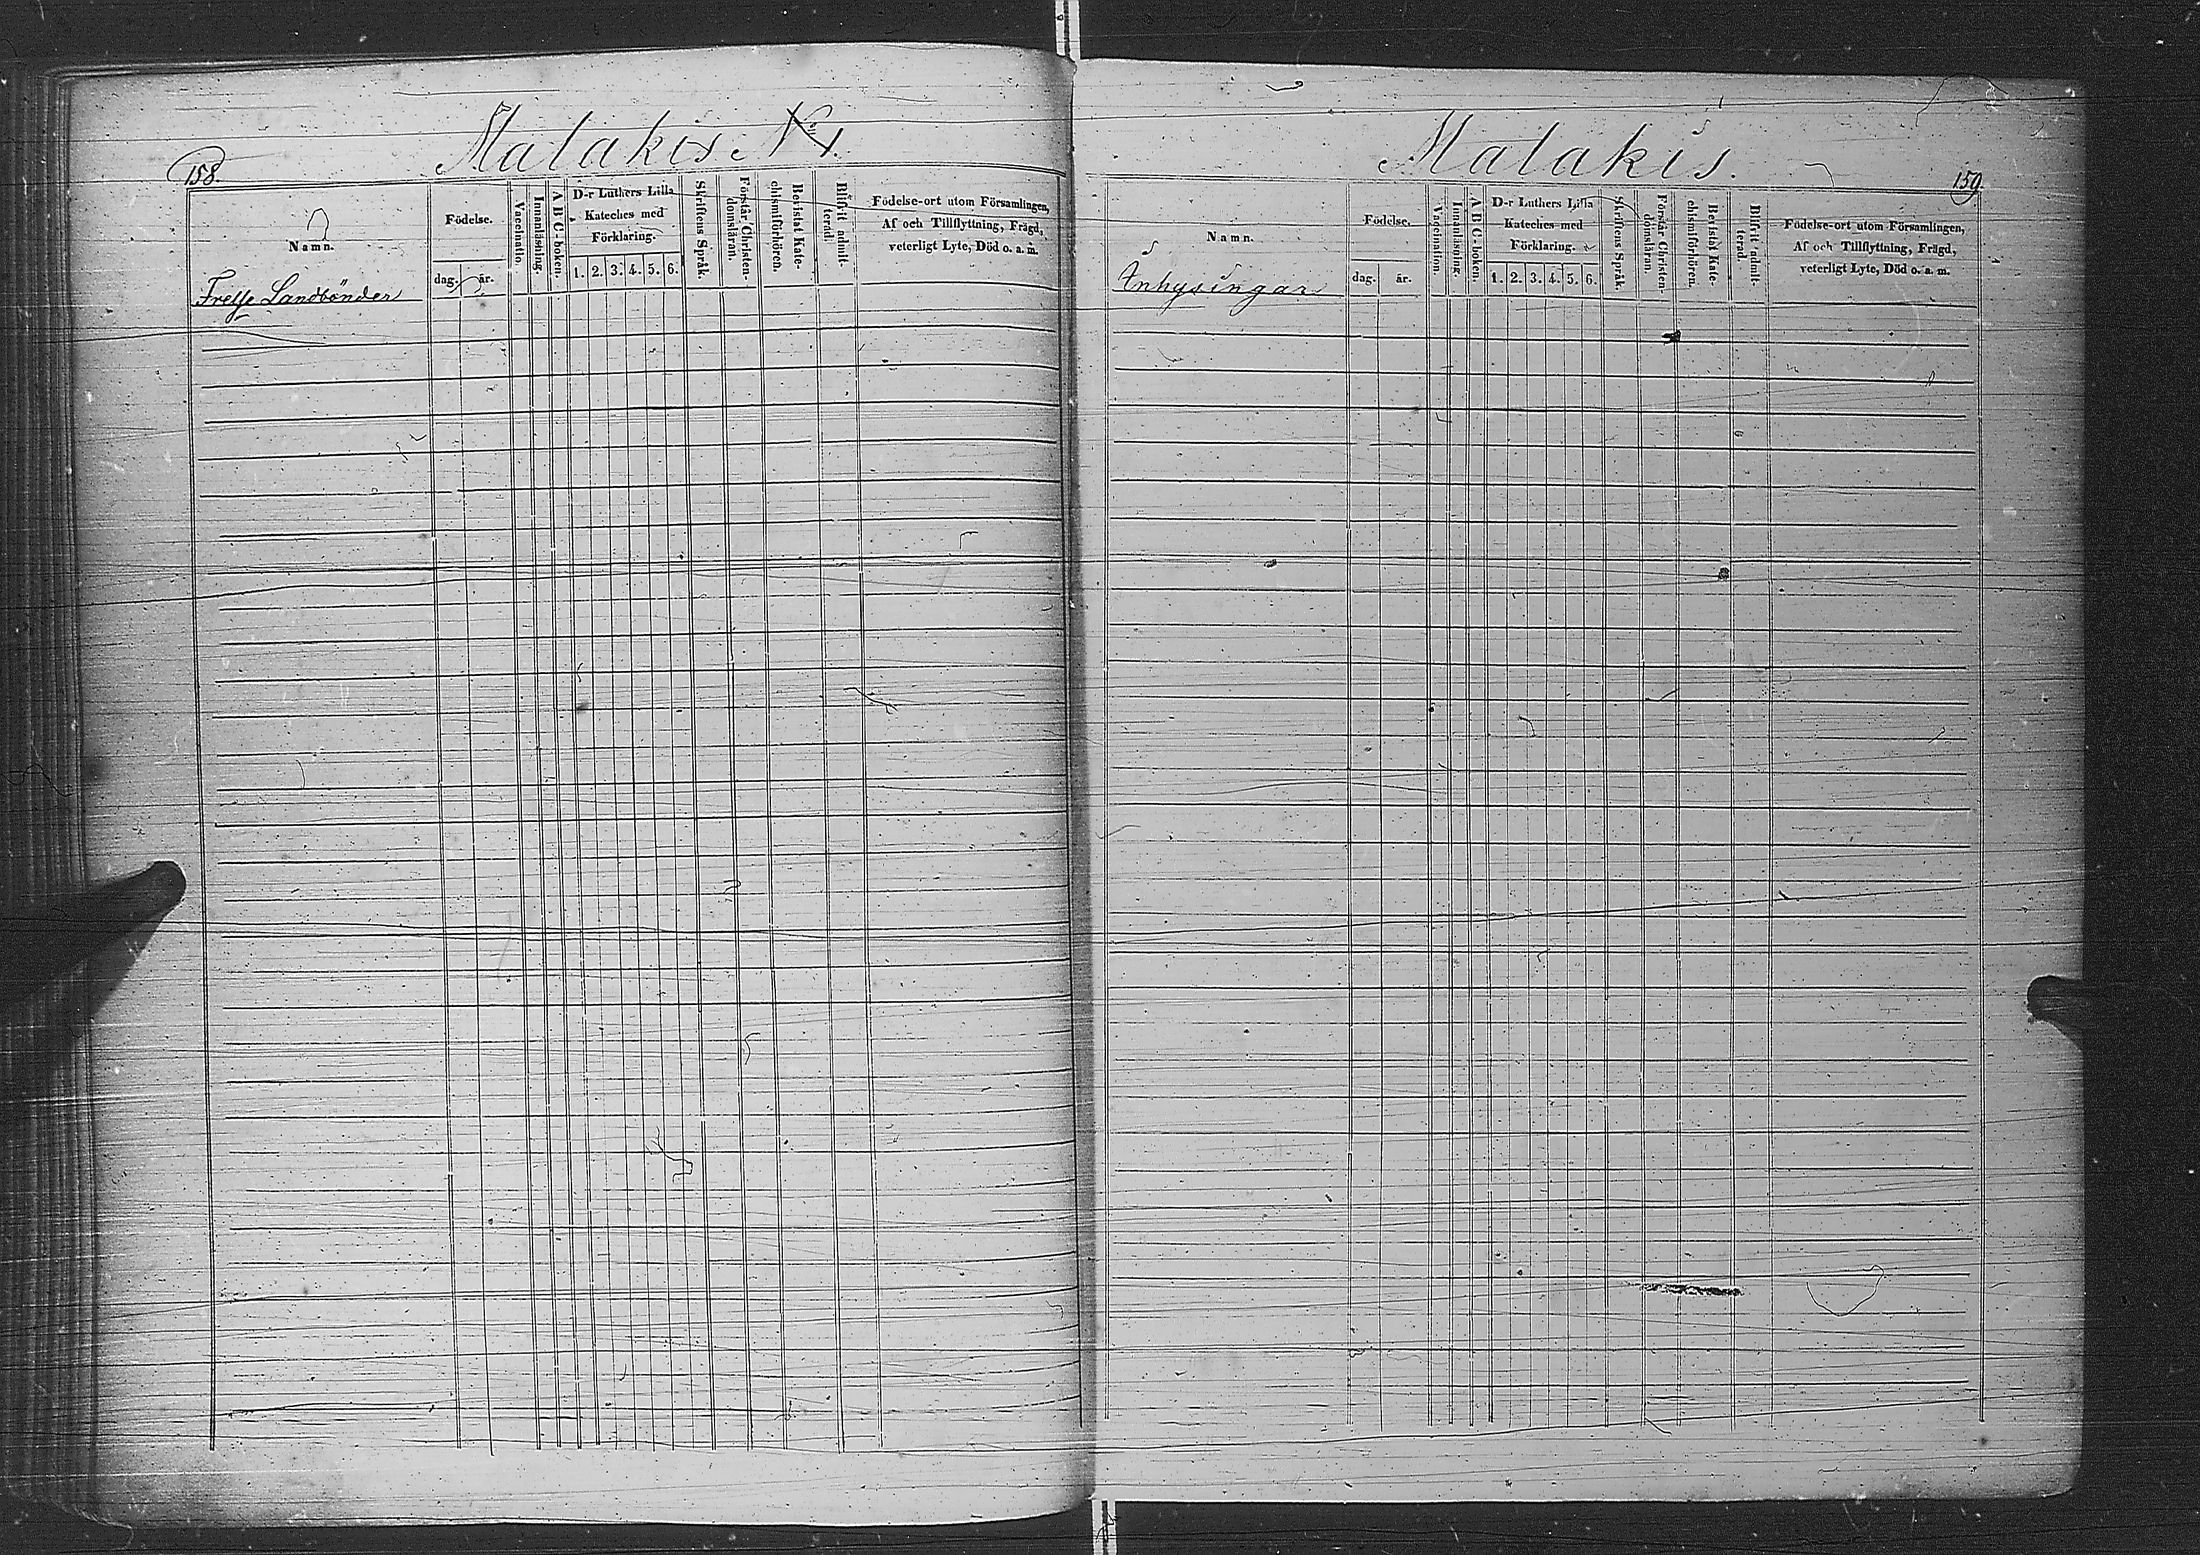 158.
Malakis No 1.
Namn.
Födelse.
dag.
år.
Vaccinatio.
Innanläsning.
A B C-boken.
D-r Luthers Lilla
Kateches med
Förklaring.
1. 2. 3. 4. 5. 6.
Skriftens Språk.
Förstår Christen-
domsläran.
Bevistat Kate-
chismiförhören.
Blifvit admit-
terad.
Födelse-ort utom Församlingen,
Af och Tillflyttning, Frägd,
veterligt Lyte, Död o. a. m.
Landbönder
Malakis.
159
Namn.
Födelse.
dag.
år.
Vaccination.
Innanläsning.
A B C-boken.
D-r Luthers Lilla
Kateches med
Förklaring.
1. 2. 3. 4. 5. 6.
Skriftens Språk.
Förstår Christen-
domsläran.
Bevistat Kate-
chismiförhören.
Blifvit admit-
terad.
Födelse-ort utom Församlingen,
Af och Tillflyttning, Frägd,
veterligt Lyte, Död o. a. m.
Inhysingar